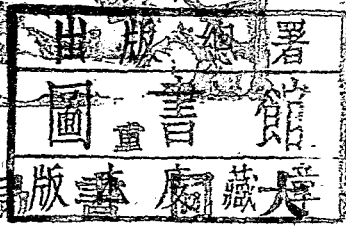 出版總署
圖書館
版本庫藏章